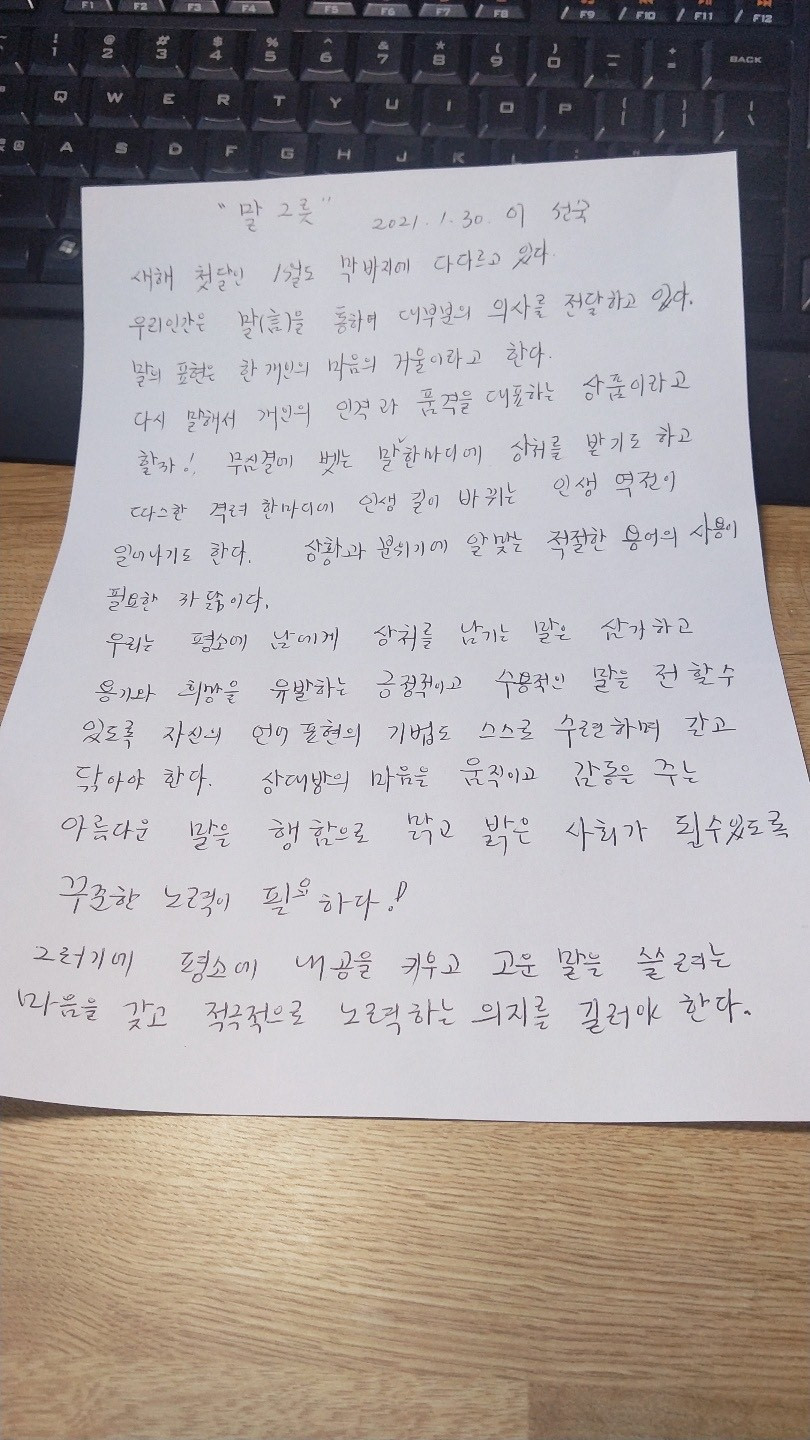 F1 F2 F3 F4 F5 F6 F7 F8 F9 F10 F11 F12
! 1 @ 2 # 3 $ 4 % 5 ^ 6 & 7 * 8 ( 9 ) 0 — - + = BACK
Q W E R T Y U I O P { [ } ] | \
A S D F G H J K L
"말 그릇" 2021.1.30. 이 선국
새해 첫달인 1월도 막바지에 다다르고 있다.
우리인간은 말(言)을 통하여 대부분의 의사를 전달하고 있다.
말의 표현은 한 개인의 마음의 거울이라고 한다.
다시 말해서 개인의 인격과 품격을 대표하는 상품이라고
할까! 무심결에 벳는 말 한마디에 상처를 받기도 하고
따스한 격려 한마디에 인생 길이 바뀌는 인생 역전이
일어나기도 한다. 상황과 분위기에 알맞는 적절한 용어의 사용이
필요한 까닮이다.
우리는 평소에 남에게 상처를 남기는 말은 삼가하고
용기와 희망을 유발하는 긍정적이고 수용적인 말을 전 할수
있도록 자신의 언어 표현의 기법도 스스로 수련하며 갈고
닦아야 한다. 상대방의 마음을 움직이고 감동을 주는
아름다운 말을 행함으로 맑고 밝은 사회가 될수있도록
꾸준한 노력이 필요하다!
그러기에 평소에 내공을 키우고 고운 말을 쓸려는
마음을 갖고 적극적으로 노력하는 의지를 길러야 한다.